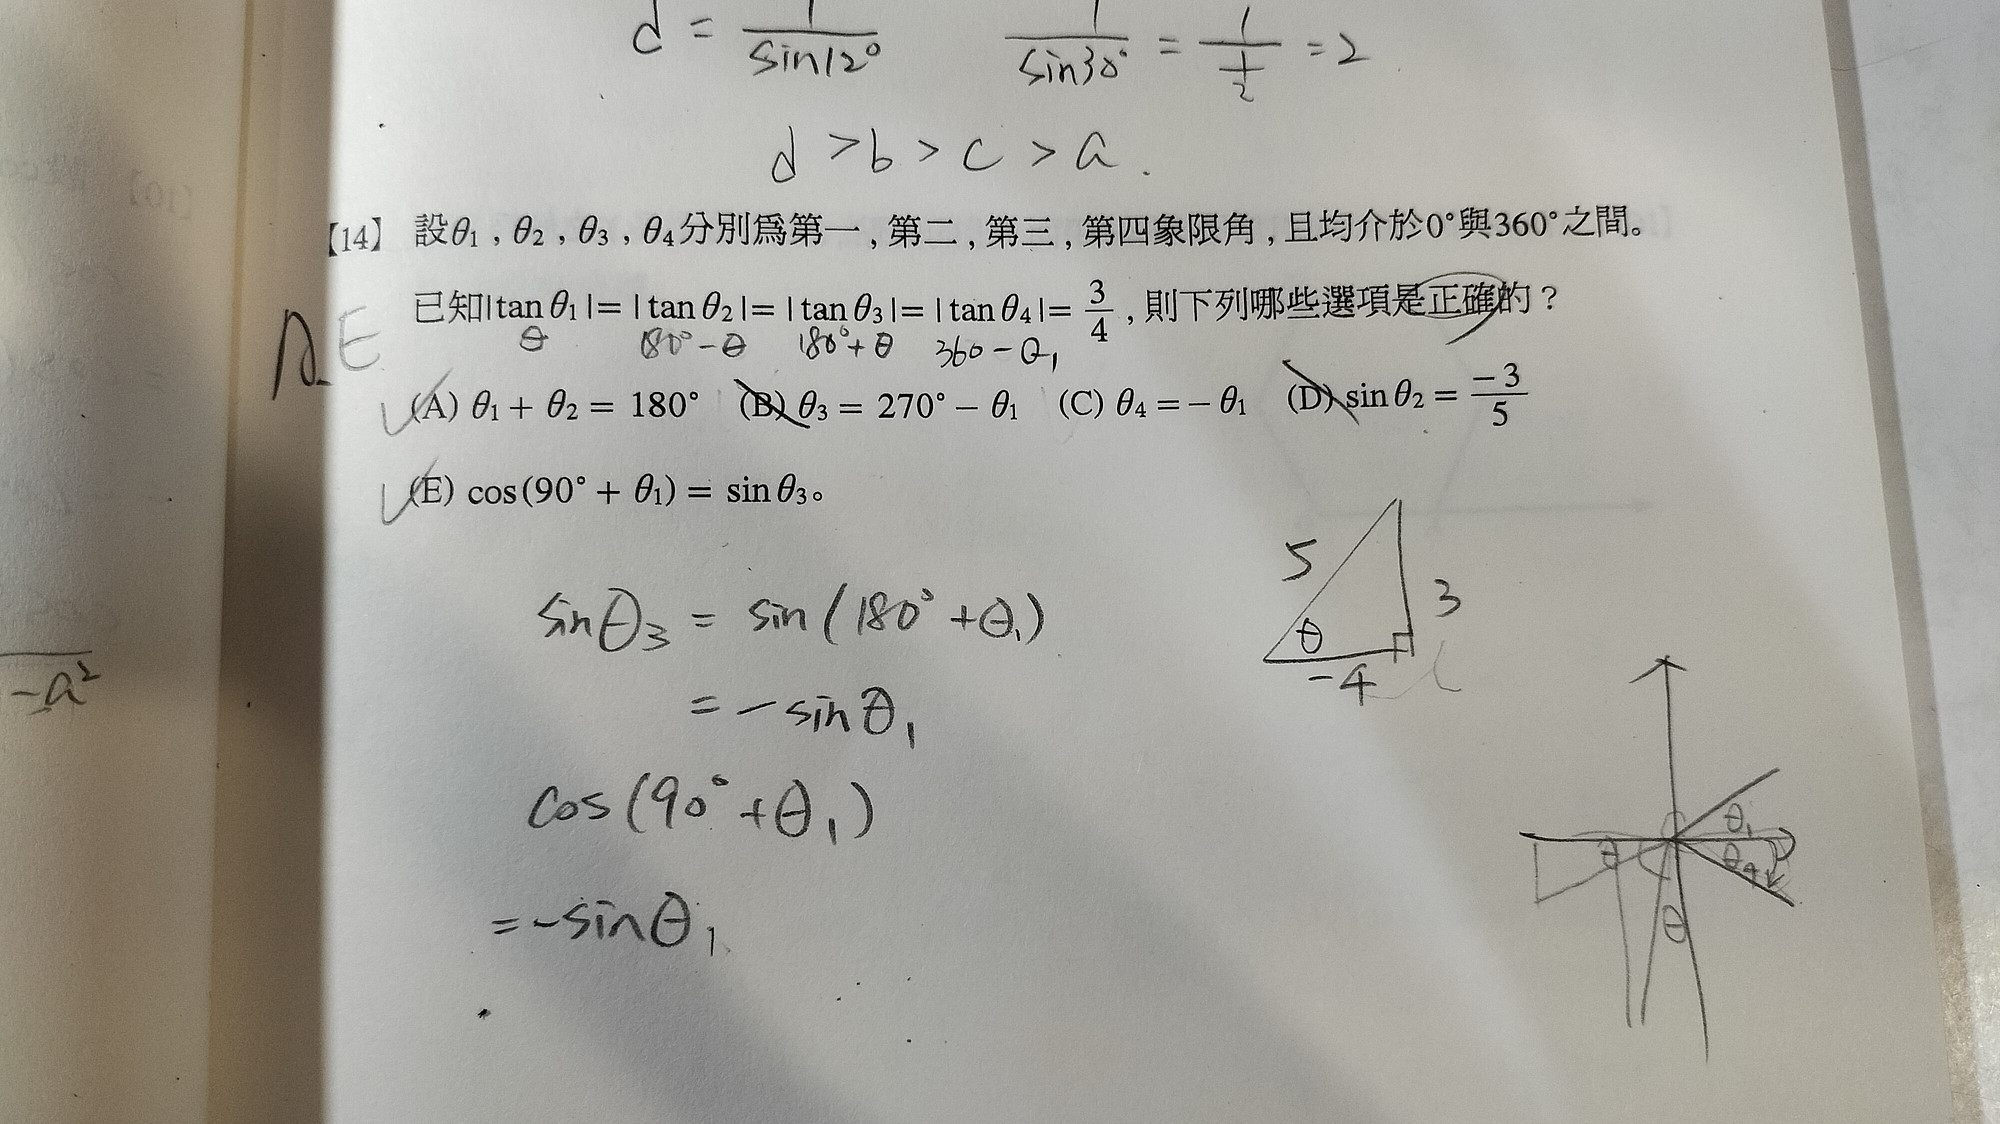 d = 1/sin12° 1/sin30° = 1/(1/2) = 2
d > b > c > a .
【14】 設θ1 , θ2 , θ3 , θ4分別爲第一 , 第二 , 第三 , 第四象限角 , 且均介於0°與360°之間。
A E 已知|tan θ1|= |tan θ2|= |tan θ3|= |tan θ4|= 3/4 , 則下列哪些選項是正確的？
θ 180°-θ 180°+θ 360-θ1
(A) θ1 + θ2 = 180° (B) θ3 = 270° - θ1 (C) θ4 = - θ1 (D) sin θ2 = -3/5
(E) cos(90° + θ1) = sin θ3。
sinθ3 = sin(180°+θ1)
= -sinθ1
cos(90°+θ1)
= -sinθ1
5 3
θ
-4
θ1
θ θ4
θ
-a²